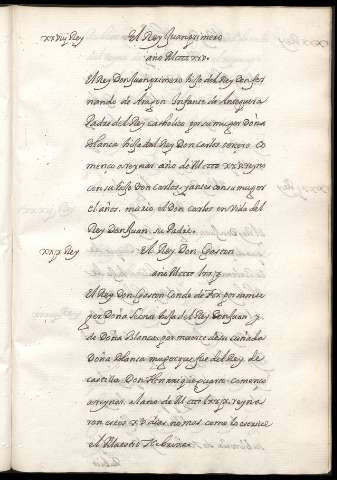 xxviij Rey El Rey Juan primero
año Mcccc xxv.
El Rey Don Juan primero hijo del Rey Don fer
nando de Aragon Infante de Antequera
Padre del Rey catholico por su muger Doña
blanca hija del Rey Don Carlos tercero co
menço a reynar año de Mcccc xxv reyno
con su hijo Don Carlos, y antes con su muger
el años. murio el Don Carlos en vida del
Rey Don Juan su Padre.
xxix Rey El Rey Don Gaston
año Mcccc lxxix
El Rey Don Gaston Conde de Fox por su mu
ger Doña Leonor hija del Rey Don Juan y
de Doña blanca, por muerte de su cuñada
Doña blanca muger que fue del Rey de
castilla Don Henrrique quarto començo
a reynar, el año de Mcccc lxxix reyna
ron estos xv dias no mas como lo escrive
el Maestro